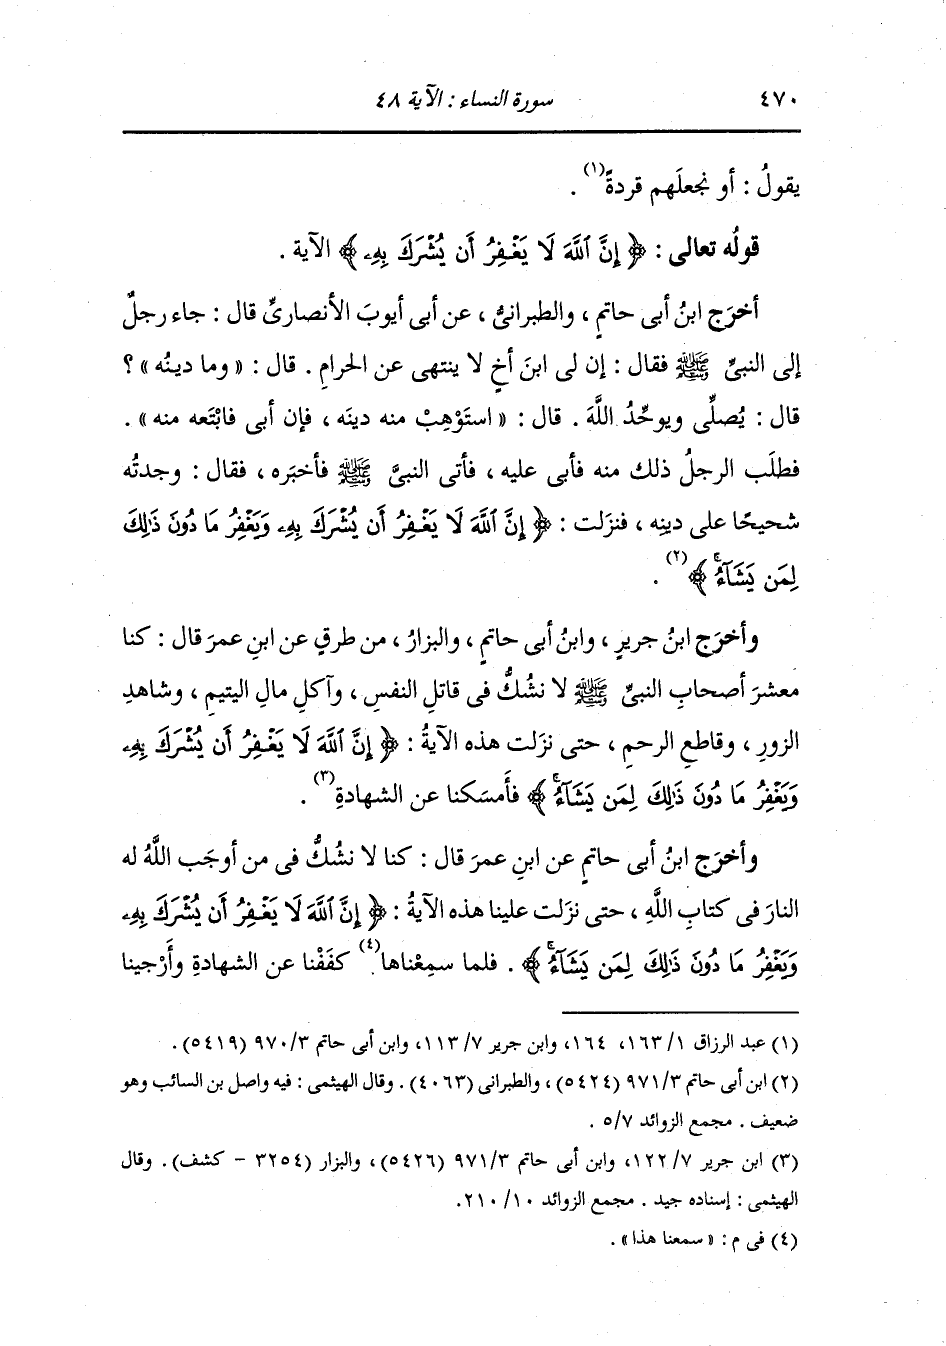 ٤٧٠ سورة النساء : الآية ٤٨
يقولُ : أو نجعلَهم قردةً(١) .
قولُه تعالى : ﴿ إِنَّ ٱللَّهَ لَا يَغْفِرُ أَن يُشْرَكَ بِهِۦ ﴾ الآية .
أخرَج ابنُ أبى حاتمٍ ، والطبرانىُّ ، عن أبى أيوبَ الأنصارىِّ قال : جاء رجلٌ
إلى النبىِّ ﷺ فقال : إن لى ابنَ أخٍ لا ينتهى عن الحرامِ . قال : « وما دينُه » ؟
قال : يُصلِّى ويوحِّدُ اللَّهَ . قال : « استَوْهِبْ منه دينَه ، فإن أبى فابْتَعه منه » .
فطلَب الرجلُ ذلك منه فأبى عليه ، فأتى النبىَّ ﷺ فأخبَره ، فقال : وجدتُه
شحيحًا على دينِه ، فنزَلت : ﴿ إِنَّ ٱللَّهَ لَا يَغْفِرُ أَن يُشْرَكَ بِهِۦ وَيَغْفِرُ مَا دُونَ ذَٰلِكَ
لِمَن يَشَآءُۚ ﴾(٢) .
وأخرَج ابنُ جريرٍ ، وابنُ أبى حاتمٍ ، والبزارُ ، من طرقٍ عن ابنِ عمرَ قال : كنا
معشرَ أصحابِ النبىِّ ﷺ لا نشُكُّ فى قاتلِ النفسِ ، وآكلِ مالِ اليتيمِ ، وشاهدِ
الزورِ ، وقاطعِ الرحمِ ، حتى نزَلت هذه الآيةُ : ﴿ إِنَّ ٱللَّهَ لَا يَغْفِرُ أَن يُشْرَكَ بِهِۦ
وَيَغْفِرُ مَا دُونَ ذَٰلِكَ لِمَن يَشَآءُۚ ﴾ فأَمسَكنا عن الشهادةِ(٣) .
وأخرَج ابنُ أبى حاتمٍ عن ابنِ عمرَ قال : كنا لا نشُكُّ فى من أوجَب اللَّهُ له
النارَ فى كتابِ اللَّهِ ، حتى نزَلت علينا هذه الآيةُ : ﴿ إِنَّ ٱللَّهَ لَا يَغْفِرُ أَن يُشْرَكَ بِهِۦ
وَيَغْفِرُ مَا دُونَ ذَٰلِكَ لِمَن يَشَآءُۚ ﴾ . فلما سمِعْناها(٤) كفَفْنا عن الشهادةِ وأَرْجينا
(١) عبد الرزاق ١/ ١٦٣، ١٦٤، وابن جرير ٧/ ١١٣، وابن أبى حاتم ٣/ ٩٧٠ (٥٤١٩) .
(٢) ابن أبى حاتم ٣/ ٩٧١ (٥٤٢٤) ، والطبرانى (٤٠٦٣) . وقال الهيثمى : فيه واصل بن السائب وهو
ضعيف . مجمع الزوائد ٧/ ٥ .
(٣) ابن جرير ٧/ ١٢٢، وابن أبى حاتم ٣/ ٩٧١ (٥٤٢٦) ، والبزار (٣٢٥٤ - كشف) . وقال
الهيثمى : إسناده جيد . مجمع الزوائد ١٠/ ٢١٠.
(٤) فى م : « سمعنا هذا » .